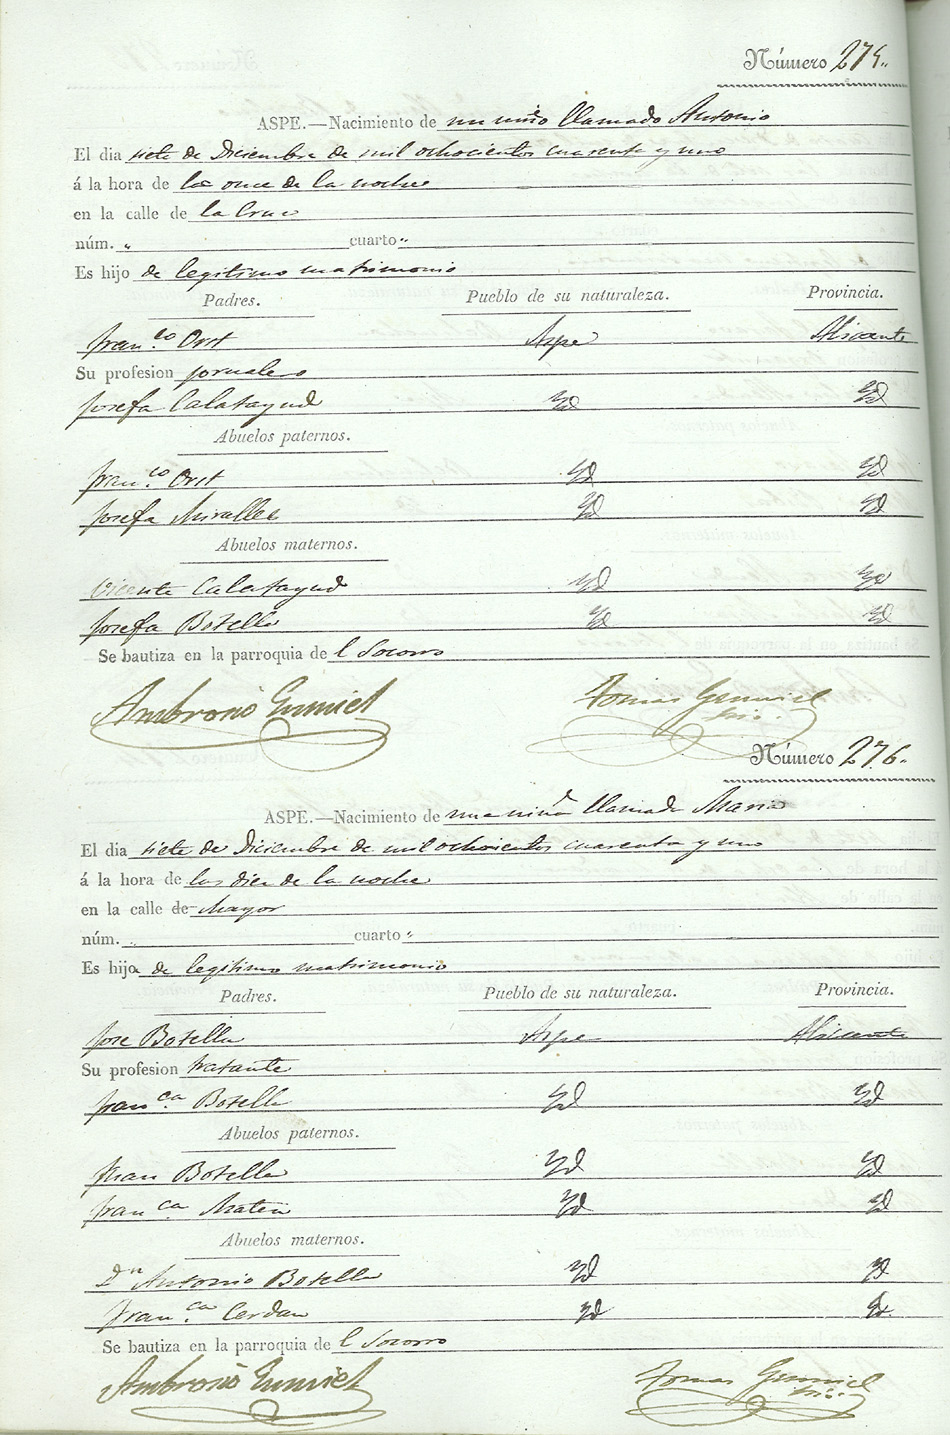 Número 275.
ASPE.—Nacimiento de un niño llamado Antonio
El dia siete de Diciembre de mil ochocientos cuarenta y uno
á la hora de las once de la noche
en la calle de la Cruz
núm. " cuarto "
Es hijo de legitimo matrimonio
Padres. Pueblo de su naturaleza. Provincia.
Fran.co Orst Aspe Alicante
Su profesion jornalero
Josefa Calatayud Yd Yd
Abuelos paternos.
Fran.co Orst Yd Yd
Josefa Miralles Yd Yd
Abuelos maternos.
Vicente Calatayud Yd Yd
Josefa Botella Yd Yd
Se bautiza en la parroquia de l Socorro
Ambrosio Gumiel Tomas Gumiel
Srio.
Número 276.
ASPE.—Nacimiento de una niña llamada Maria
El dia siete de Diciembre de mil ochocientos cuarenta y uno
á la hora de las diez de la noche
en la calle de Mayor
núm. " cuarto "
Es hija de legitimo matrimonio
Padres. Pueblo de su naturaleza. Provincia.
Jose Botella Aspe Alicante
Su profesion tratante
Fran.ca Botella Yd Yd
Abuelos paternos.
Juan Botella Yd Yd
Fran.ca Mateu Yd Yd
Abuelos maternos.
Dn Antonio Botella Yd Yd
Fran.ca Cerdan Yd Yd
Se bautiza en la parroquia de l Socorro
Ambrosio Gumiel Tomas Gumiel
Srio.